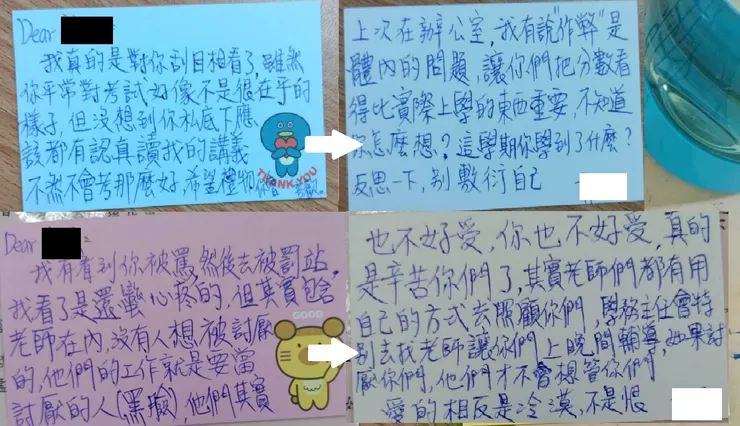 Dear
我真的是對你刮目相看了，雖然
你平常對考試好像不是很在乎的
樣子，但沒想到你私底下應
該都有認真讀我的講義
不然不會考那麼好，希望禮物
THANK YOU
上次在辦公室，我有說"作弊"是
體內的問題，讓你們把分數看
得比實際上學的東西重要，不知道
你怎麼想？這學期你學到了什麼？
反思一下，別敷衍自己
Dear
我有看到你被罵，然後去被罰站，
我看了是還蠻心疼的，但其實包含
老師在內，沒有人想被討厭
的，他們的工作就是要當
討厭的人(黑臉)，他們其實
GOOD
也不好受，你也不好受，真的
是辛苦你們了，其實老師們都有用
自己的方式去照顧你們，學務主任會特
別去找老師讓你們上晚間輔導，如果討
厭你們，他們才不會想管你們
愛的相反是冷漠，不是恨